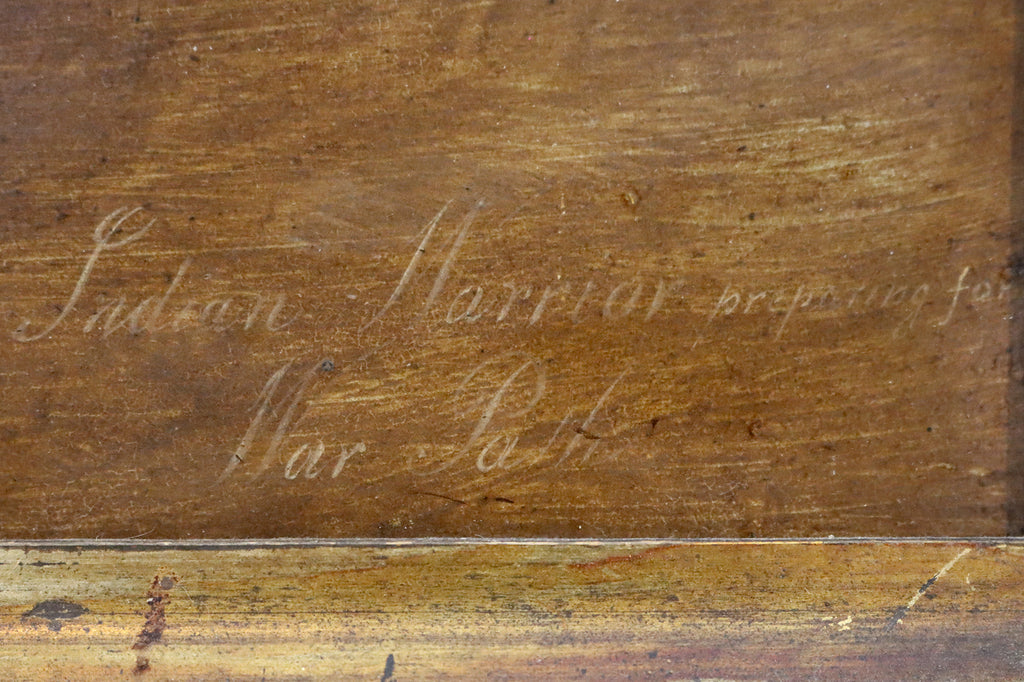 Indian Warrior preparing for
War Path